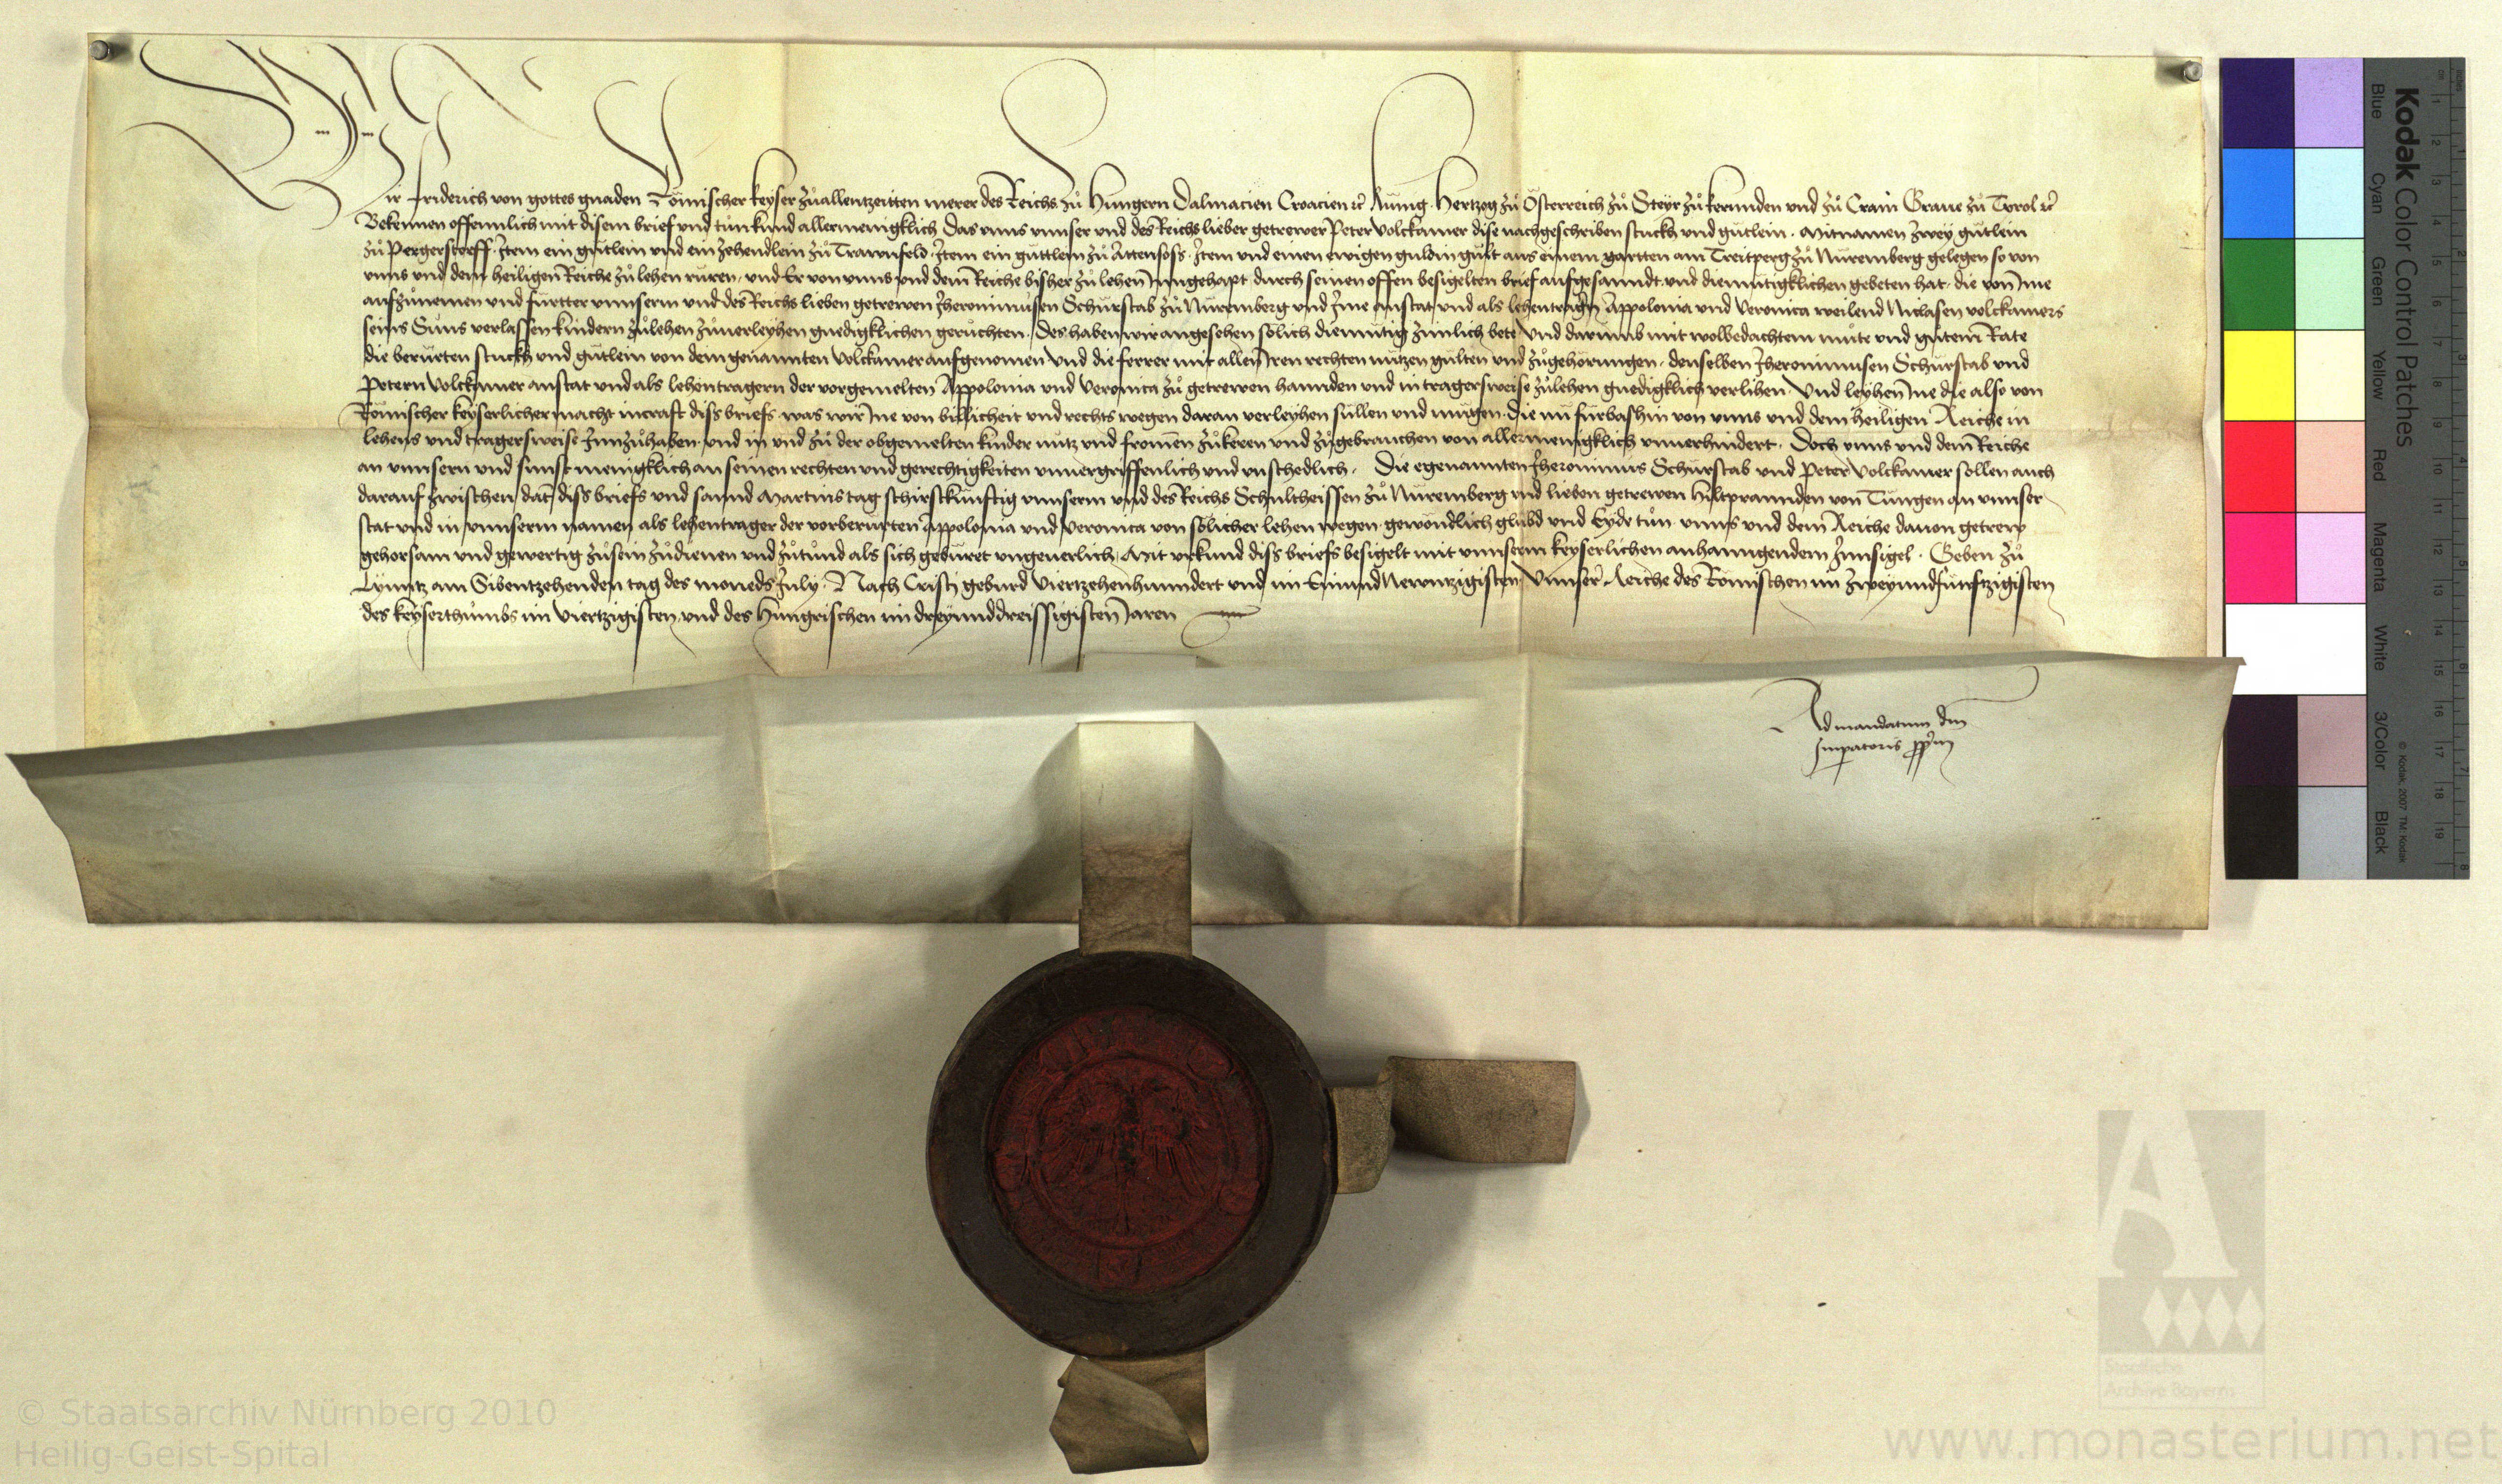 Wir Friderich von gottes gnaden Römischer keyser zů allentzeitten merer des Reichs zů Hungern Dalmacien Croacien ꝛc̃ kunig Hertzog zů Österreich zů Steyr zů kernnden vnd zů Crain Graue zů Tyrol ꝛc̃
Bekennen offennlich mit disem brief vnd tůn kund allermenigklich Das vnns vnnser vnd des Reichs lieber getrewer Peter Volckamer dise nachgeschriben stuckh vnd gůtlein . mitnamen zwey gůtlein
zů Pergerstorff . Item ein gůtlein vnd ein zehendlein zů Trawnfeld . Item ein gůttlein zů Attensöss . Item vnd einen ewigen guldin gült aus einem gartten am Treitperg zů Nůremberg gelegen so von
vnns vnd dem heiligen Reiche zů lehen růren . vnd Er von vnns vnd dem Reiche bisher zů lehen Inngehapt durch seinen offen besigelten brief aufgesanndt vnd diemůtigklichen gebeten hat . die von Ime
aufzůnemen vnd fürtter vnnserm vnd des Reichs lieben getrewen Jheronimusen Schürstab zů Nůremberg vnd Ime anstat vnd als lehentragern Appolonia vnd Veronica weilend Niclasen volckamers
seins Suns verlassen kindern zůlehen zůuerleyhen gnedigklichen gerůchten . Des haben wir angesehen sölich diemütig zimlich bete vnd darumb mit wolbedachtem mute vnd gůtem Rate
die berürten stuckh vnd gütlein von dem genannten Volckamer aufgenomen vnd die ferrer mit allen Iren rechten nutzen gülten vnd zůgehörungen . denselben Jheronimusen Schürstab vnd
Petern Volckamer anstat vnd als lehentragern der vorgemelten Appolonia vnd Veronica zů getrewen hannden vnd in tragersweise zůlehen gnedigklich verlihen . Vnd leyhen Ine die also von
Römischer keyserlicher macht incraft diss briefs . was wir Ine von billicheit vnd rechts wegen daran verleyhen süllen vnd mügen . Die nu fürbashin von vnns vnd dem heiligen Reiche in
lehens vnd tragersweise Innzůhaben . vnd in vnd zů der obgemelten kinder nutz vnd fromen zůkeren vnd zůgebrauchen von allermenigklich vnuerhindert . Doch vnns vnd dem Reiche
an vnnsern vnd sunst menigklich an seinen rechten vnd gerechtigkeiten vnuergriffenlich vnd vnschedlich . Die egenannten Jheronimus Schürstab vnd Peter Volckamer sollen auch
darauf zwischen dat diss briefs vnd sannd Martinstag schirstkünftig vnnserm vnd des Reichs Schultheissen zů Nůremberg vnd lieben getrewen Hiltprannden von Tüngen an vnnser
stat vnd in vnnserm namen als lehentrager der vorberurten Appolonia vnd Veronica von sölicher lehen wegen . gewöndlich glübd vnd Eyde tůn . vnns vnd dem Reiche dauon getrew
gehorsam vnd gewertig zůsein zůdienen vnd zůtůnd als sich gebüret vngeuerlich . Mit vrkund diss briefs besigelt mit vnnserm keyserlichen anhanngendem Innsigel . Geben zů
Lynntz am Sibentzehenden tag des moneds July . Nach Cristi geburd Viertzehenhundert vnd im Einundnewntzigisten Vnnser Reiche des Römischen im zweyundfünftzigisten
des keyserthumbs im Viertzigisten vnd des Hungrischen im dreyunddreissigisten Jaren
Ad mandatum dm̃
Imꝑatoris ꝓp̃m
Kodak Color Control Patches
Blue Cyan Green Yellow Red Magenta White 3/Color Black
© Kodak, 2007 TM: Kodak
© Staatsarchiv Nürnberg 2010
Heilig-Geist-Spital
Staatliche
Archive Bayerns
www.monasterium.net